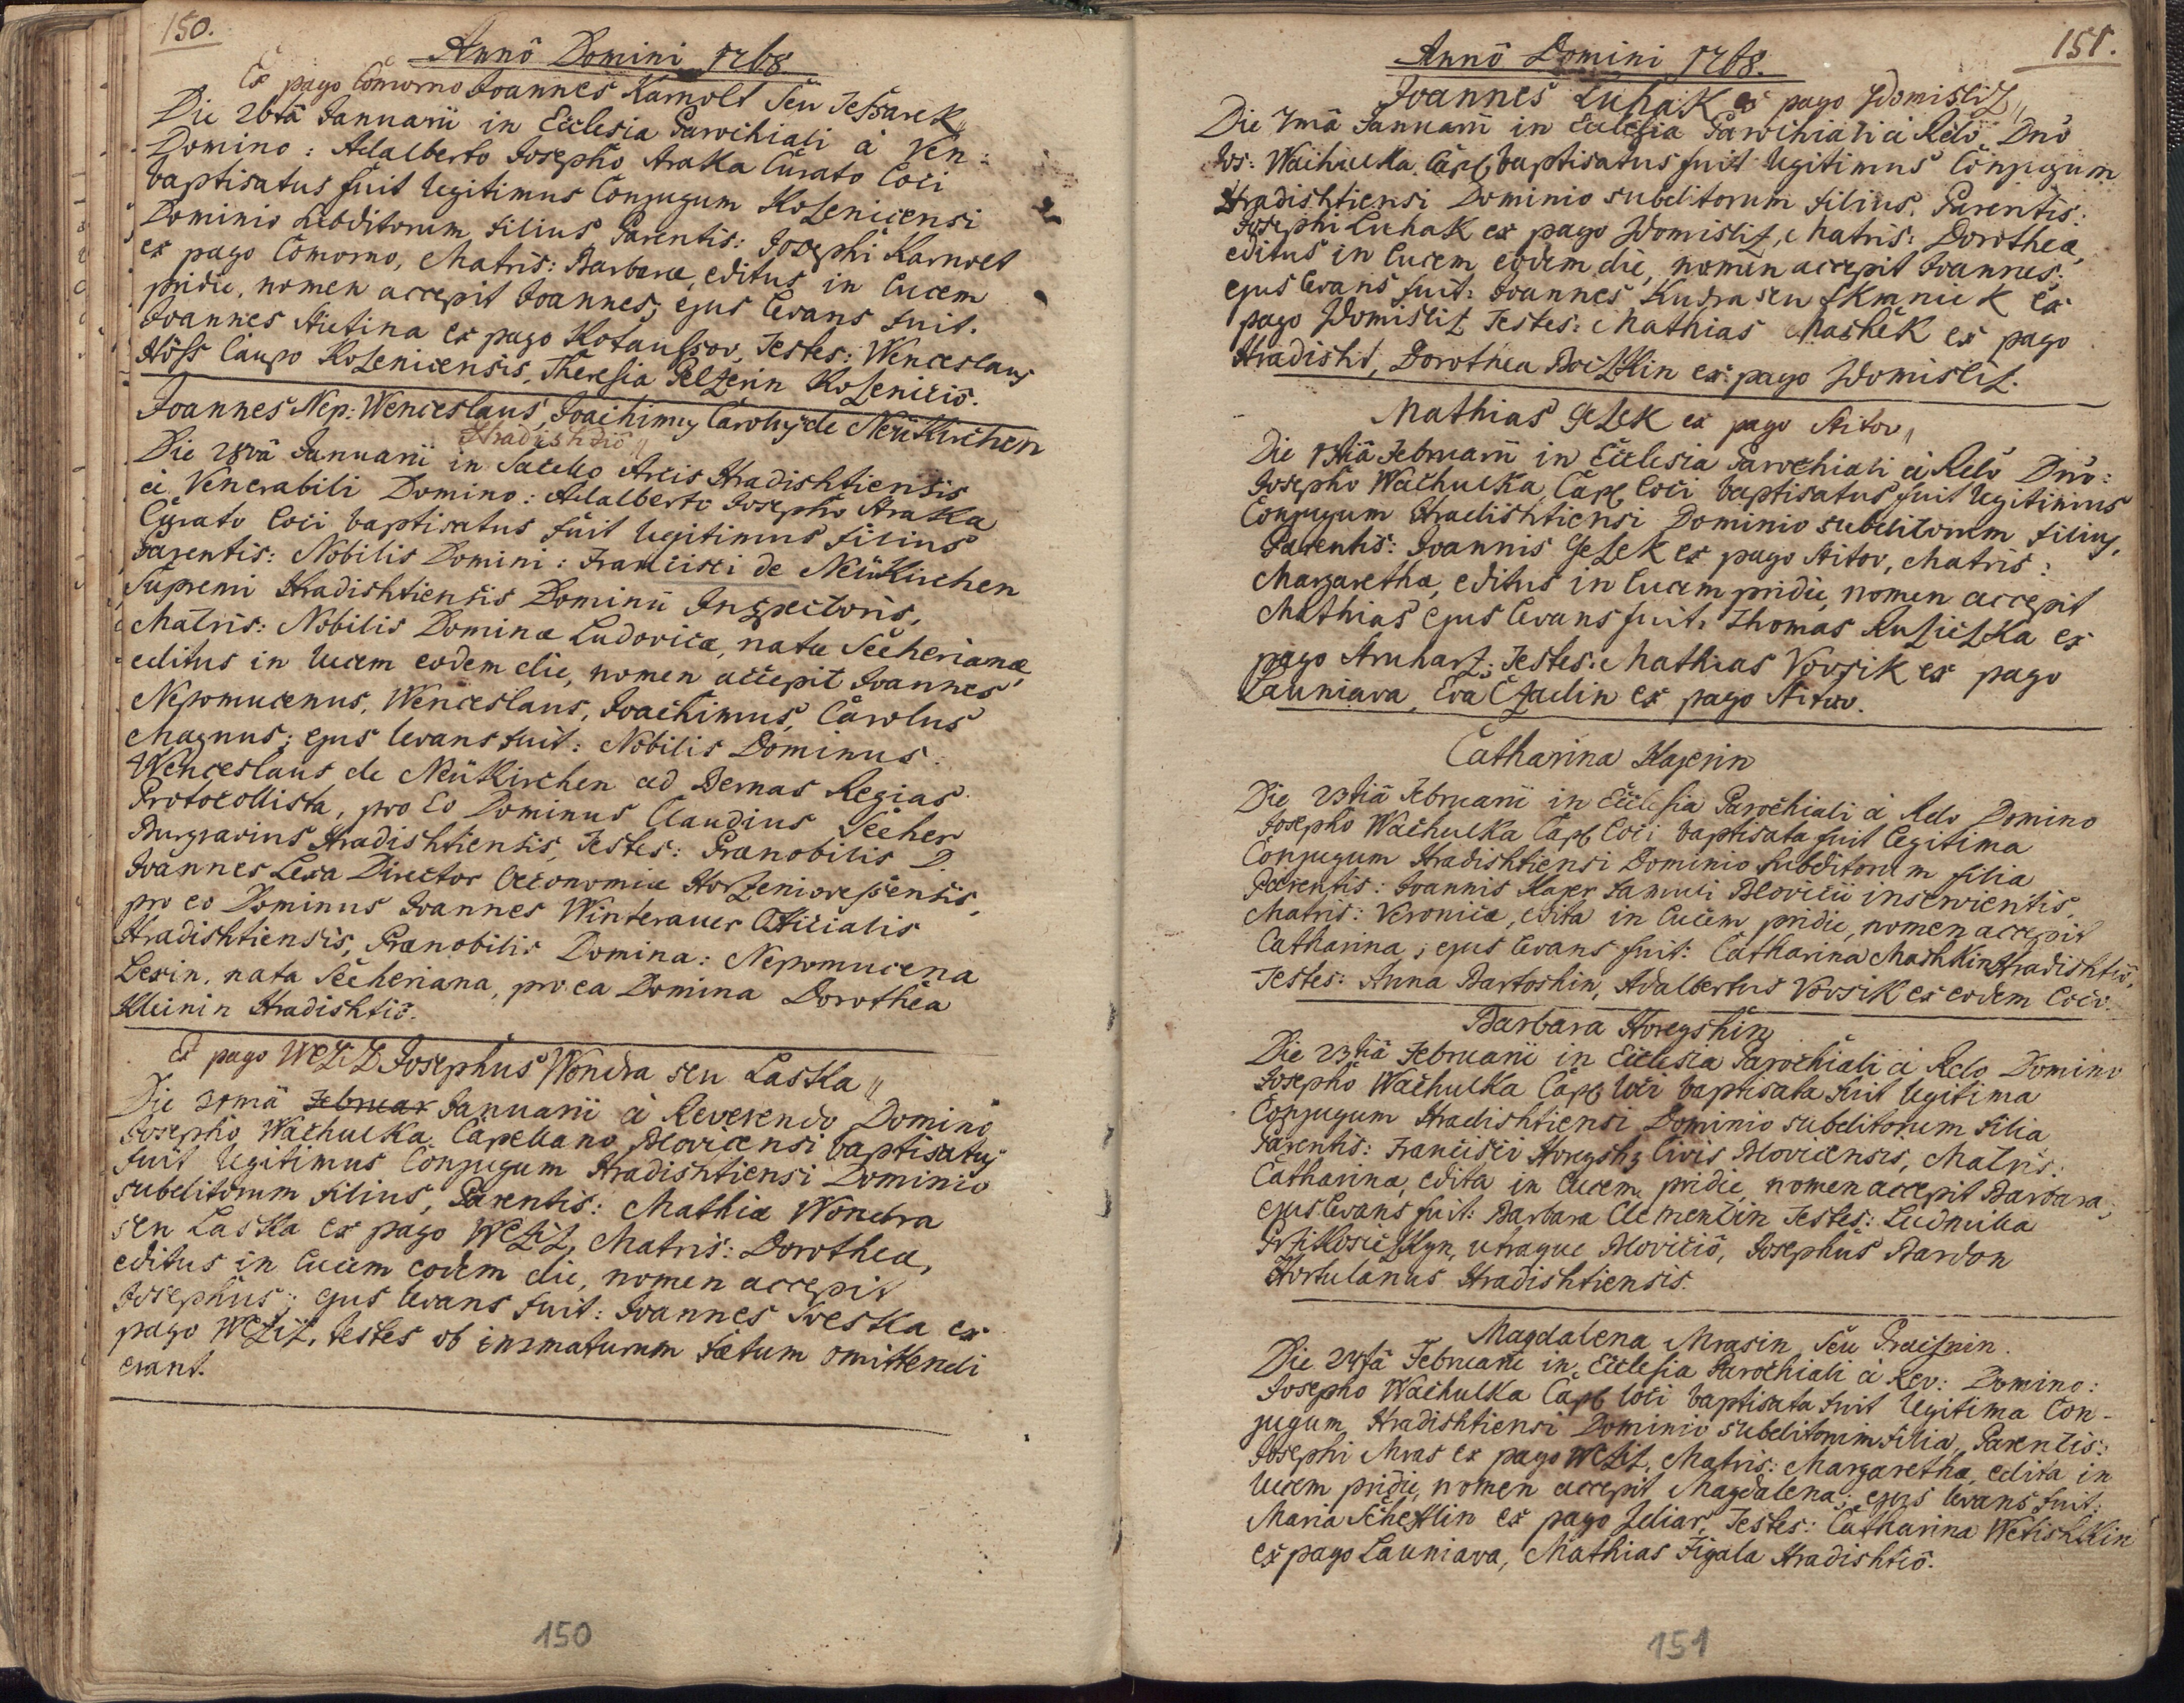 150.
Annô Domini 1768
Ex pago Comorno Joannes Karnolt seu Jessarek
Die 26tâ Januarii in Ecclesia Parochiali à Ven:
Domino: Adalberto Josepho Straka Curato loci
baptisatus fuit legitimus Conjugum Kozenicensi
Dominio subditorum filius Parentis: Josephi Karnolt
ex pago Comorno, Matris: Barbaræ, editus in lucem
pridie, nomen accepit Joannes; ejus levans fuit.
Joannes Autina ex pago Kotaussov, Testes: Wenceslaus
Höss Caupo Kozenicensis, Theresia Pelzerin Kozenicio.
Joannes Nep: Wenceslaus, Joachimus Carolus de Neükirchen
Hradishtiô
Die 28vâ Januarii in Sacello Arcis Hradishtiensis
à Venerabili Domino: Adalberto Josepho Straka
Curato loci baptisatus fuit legitimus filius
Parentis: Nobilis Domini: Francisci de Neükirchen
Supremi Hradishtiensis Dominii Inspectoris,
Matris: Nobilis Dominæ Ludovicæ, natæ Secherianæ,
editus in lucem eodem die, nomen accepit Joannes
Nepomucenus, Wenceslaus, Joachimus, Carolus
Magnus; ejus levans fuit: Nobilis Dominus
Wenceslaus de Neükirchen ad Bernas Regias
Protocollista, pro Eo Dominus Claudius Secher
Burgravius Hradishtiensis, Testes: Prænobilis D.
Joannes Lexa Director Oeconomiæ Horzeniovesensis,
pro eo Dominus Joannes Winterauer Officialis
Hradishtiensis, Prænobilis Domina: Nepomucena
Lexin, nata Secheriana, pro ea Domina Dorothea
Kleinin Hradishtiô.
Ex pago Wcziz Josephus Wondra seu Laska
Die 30mâ Februar Januarii à Reverendo Domino
Josepho Wachulka Capellano Blovicensi baptisatus
fuit legitimus Conjugum Hradishtiensi Dominio
subditorum filius, Parentis: Mathiæ Wondra
seu Laska ex pago Wcziz, Matris: Dorotheæ,
editus in lucem eodem die, nomen accepit
Josephus; ejus levans fuit: Joannes Sveska ex
pago Wcziz, testes ob immaturum fœtum omittendi
erant.
150
151.
Annô Domini 1768.
Joannes Luhak ex pago Zdomisliz
Die 7mâ Januarii in Ecclesia Parochiali à Rdo Dno
Jos: Wachulka Capl, baptisatus fuit legitimus Conjugum
Hradishtiensi Dominio subditorum filius. Parentis:
Josephi Luhak ex pago Zdomisliz, Matris: Dorotheæ,
editus in lucem eodem die, nomen accepit Joannes;
ejus levans fuit: Joannes Kudra seu Skranick ex
pago Zdomisliz Testes: Mathias Mashek ex pago
Hradisht, Dorothea Boczkin ex pago Zdomisliz.
Mathias Gezek ex pago Aitov
Die 13tiâ Februarii in Ecclesia Parochiali à Rdo Dno:
Josepho Wachulka Capl loci baptisatus fuit legitimus
Conjugum Hradishtiensi Dominio subditorum filius,
Parentis: Joannis Gezek ex pago Aitov, Matris:
Margarethæ, editus in lucem pridie, nomen accepit
Mathias ejus levans fuit: Thomas Ruziczka ex
pago Struharz; Testes: Mathias Vovsik ex pago
Launiava, Eva Czadin ex pago Aitov.
Catharina Hajerin
Die 23tiâ Februarii in Ecclesia Parochiali à Rdo Domino
Josepho Wachulka Capl loci baptisata fuit legitima
Conjugum Hradishtiensi Dominio subditorum filia
Parentis: Joannis Hajer Famuli Blovicii inservientis,
Matris: Veronicæ, edita in lucem pridie, nomen accepit
Catharina; ejus levans fuit: Catharina Mashkin Hradishtiô,
Testes: Anna Bartoshin, Adalbertus Vovsik ex eodem loco.
Barbara Horegshin
Die 23tiâ Februarii in Ecclesia Parochiali à Rdo Domino
Josepho Wachulka Capl loci baptisata fuit legitima
Conjugum Hradishtiensi Dominio subditorum filia
Parentis: Francisci Horegsh, Civis Blovicensis, Matris:
Catharinæ, edita in lucem pridie nomen accepit Barbara;
ejus levans fuit: Barbara Clementin Testes: Ludmilla
utraque Blovicio, Josephus Bardon
Hortulanus Hradishtiensis.
Magdalena Mrasin seu Praiznin.
Die 24tâ Februarii in Ecclesia Parochiali à Rev: Domino:
Josepho Wachulka Capl loci baptisata fuit legitima Con-
jugum Hradishtiensi Dominio subditorum filia, Parentis:
Josephi Mras ex pago Wcziz, Matris: Margarethæ, edita in
lucem pridie, nomen accepit Magdalena; ejus levans fuit:
Maria Scheftlin ex pago Zdiar, Testes: Catharina Wetishkin
ex pago Launiava, Mathias Figala Hradishtiô.
151